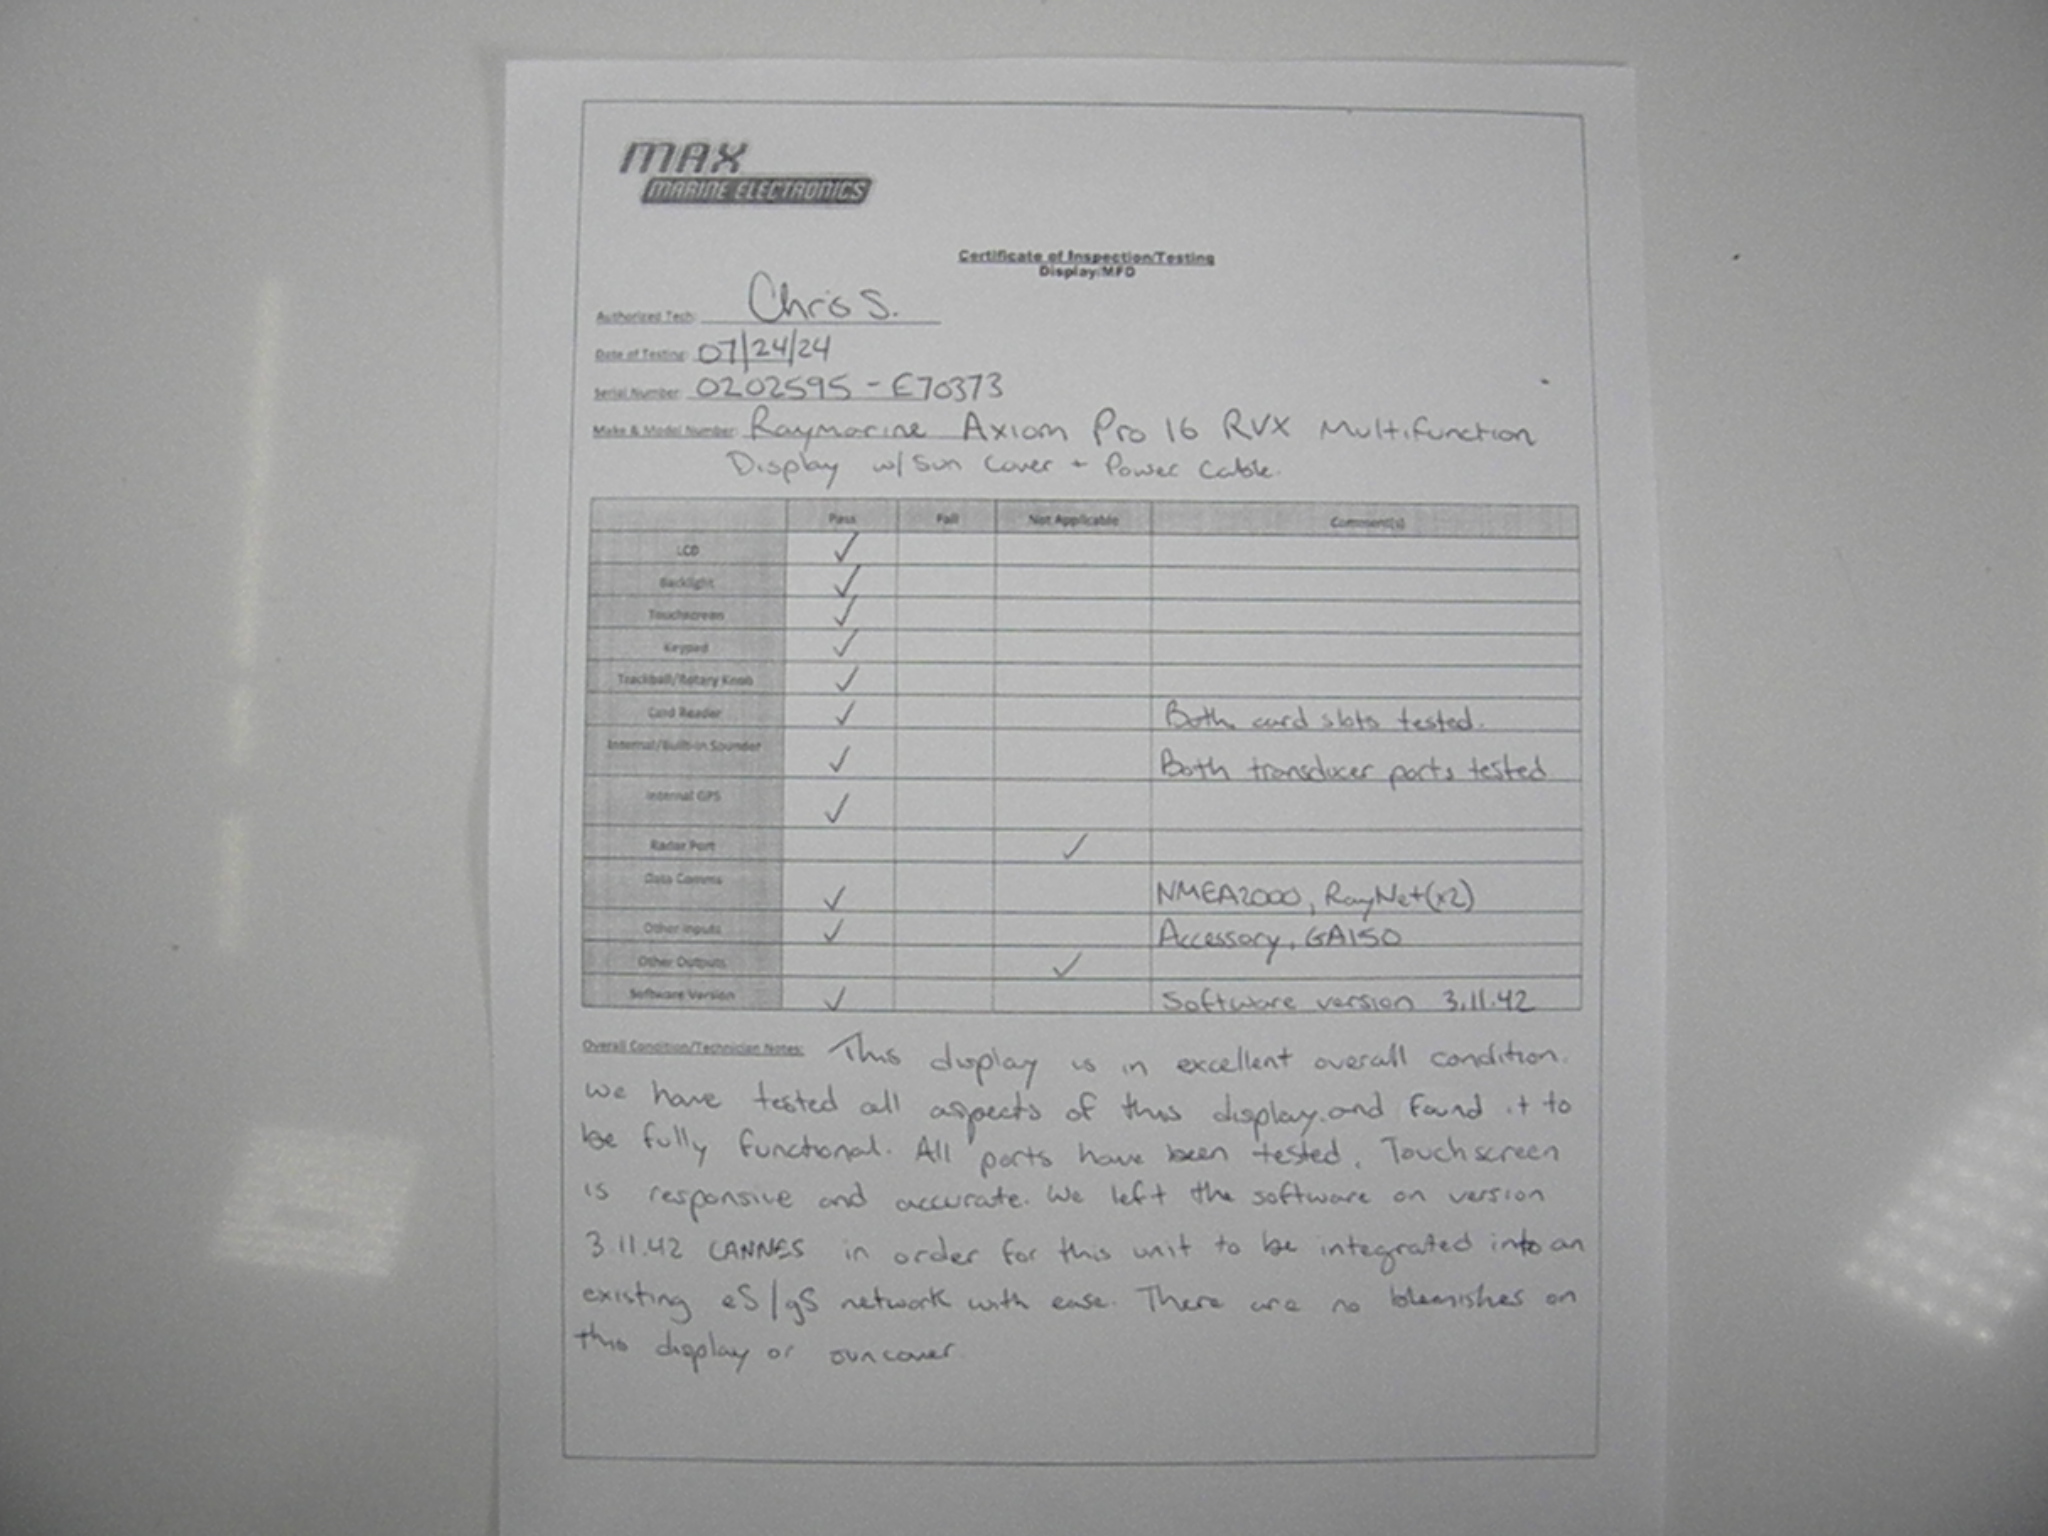 MAX
MARINE ELECTRONICS
Certificate of Inspection/Testing
Display/MFD
Authorized Tech: Chris S.
Date of Testing: 07/24/24
Serial Number: 0202595 - E70373
Make & Model Number: Raymarine Axiom Pro 16 RVX Multifunction
Display w/ Sun Cover + Power Cable.
Pass Fail Not Applicable Comment(s)
LCD ✓
Backlight ✓
Touchscreen ✓
Keypad ✓
Trackball/Rotary Knob ✓
Card Reader ✓ Both card slots tested.
Internal/Built-in Sounder ✓ Both transducer ports tested
Internal GPS ✓
Radar Port ✓
Data Comms ✓ NMEA2000, RayNet(x2)
Other Inputs ✓ Accessory, GA150
Other Outputs ✓
Software Version ✓ Software version 3.11.42
Overall Condition/Technician Notes: This display is in excellent overall condition.
We have tested all aspects of this display and found it to
be fully functional. All ports have been tested. Touchscreen
is responsive and accurate. We left the software on version
3.11.42 CANNES in order for this unit to be integrated into an
existing eS/gS network with ease. There are no blemishes on
this display or suncover.